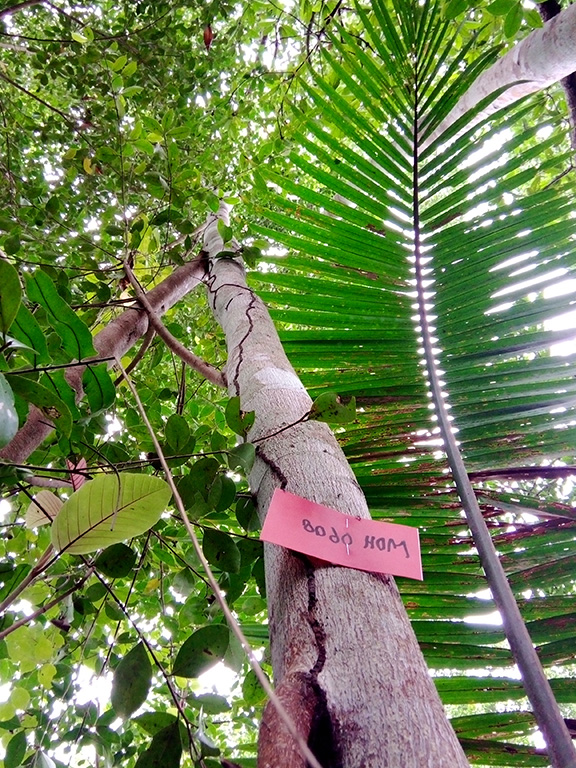 MOH 0608